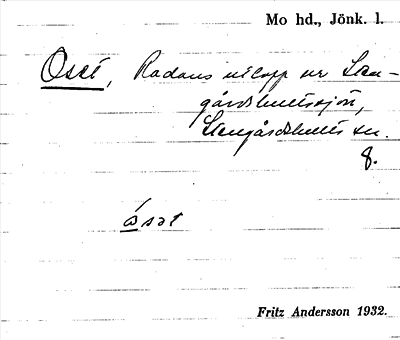 Mo hd., Jönk. l.
Oset, Radans utlopp ur Sten-
gårdshultssjön,
Stengårdshults sn.
8.
ὠset
Fritz Andersson 1932.